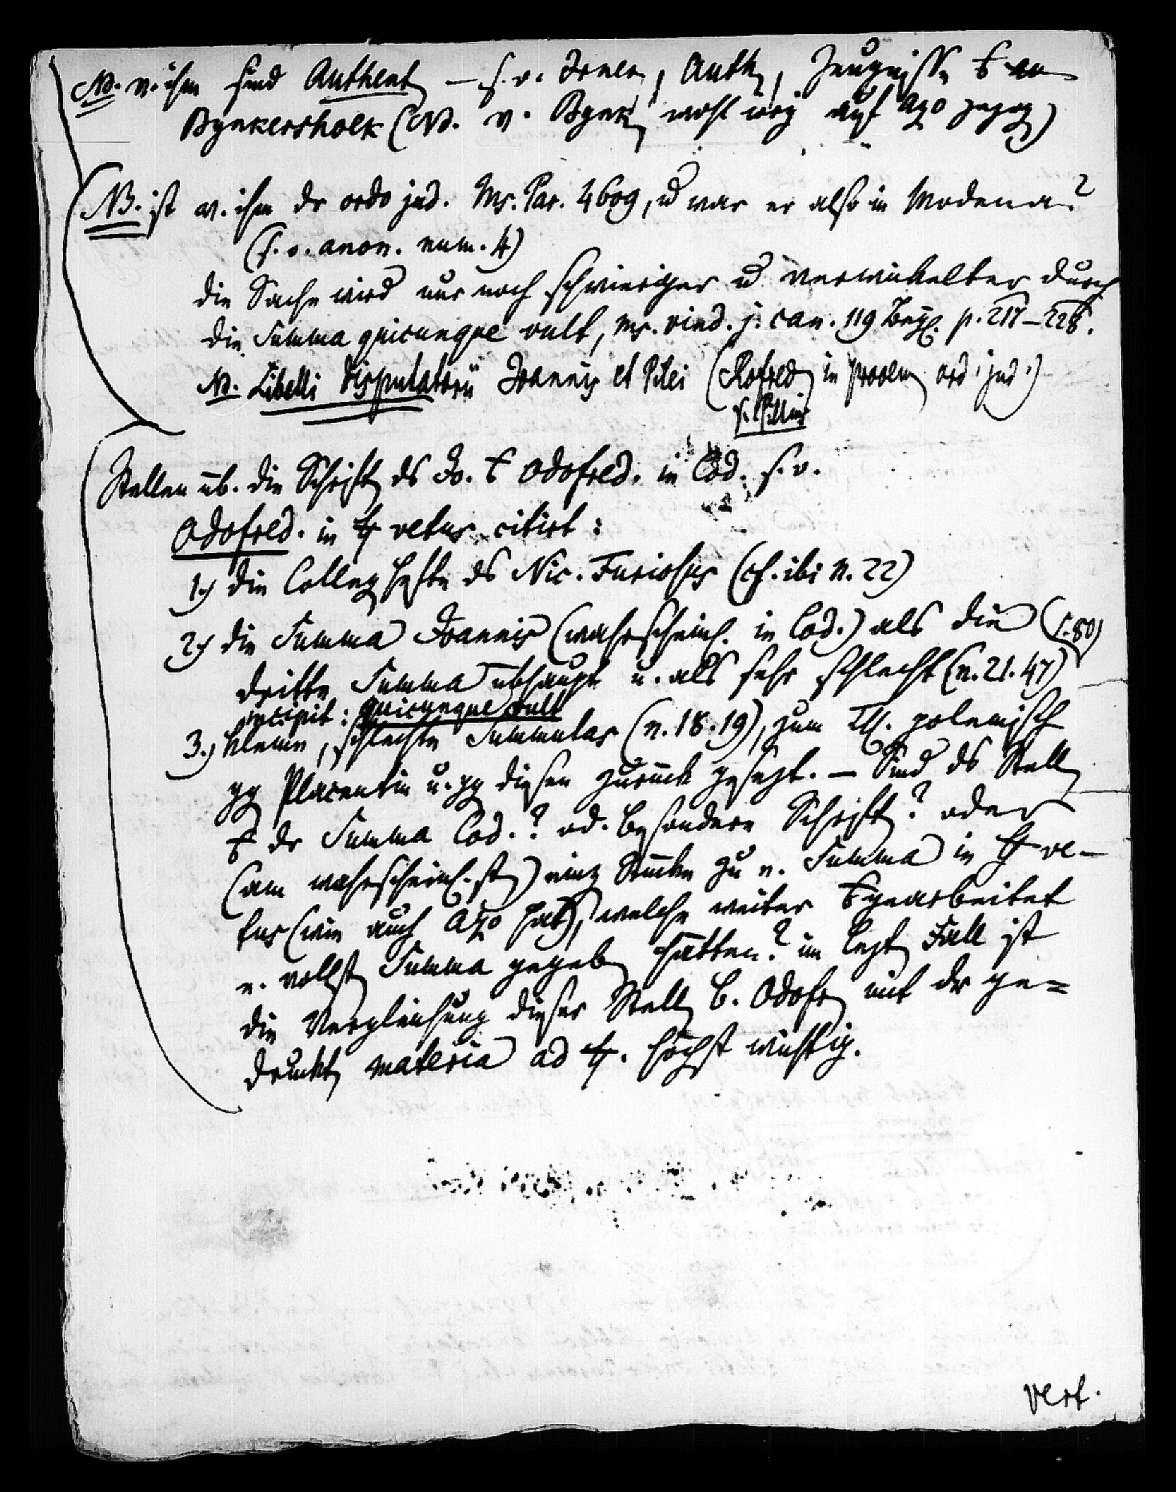 NB. v. ihm sind Authent. — s. v. Irner., Auth., Zeugnisse
Bynkershoek (NB. v. Bynk. wohl auf Azo)
NB. ist v. ihm dr ordo jud. Ms. Par. 4609, u war er also in Modena?
(s. v. anon. num. 4)
die Sache wird nur noch schwieriger u verwickelter durch
die Summa quicunque vult, ms. vind. j. can. 119 p. 217–228.
NB. Libelli Disputatorii Joannis et Pilei (Rofred. in prooem. ord. jud.)
s. Pillius
Stellen üb. die Schrift ds Jo. Odofred. in Cod. s. v.
Odofred. in ff vetus citirt:
1.) die Colleg hefte ds Nic. Furiosus (cf. ibi n. 22)
2.) die Summa Joannis (wahrscheinl. in Cod.) als die (s. 80)
dritte Summa übhaupt u. als sehr schlecht (n. 21. 47)
incipit: quicunque vult
3.) kleine, schlechte Summulas (n. 18. 19), zum Th. polemisch
gg Placentin u. gg diesen zurück gesezt. — Sind ds Stell.
dr Summa Cod.? od. besondere Schrift? oder
(am wahrscheinl.st.) einz. Stücke zu e. Summa in ff ve-
tus (wie auch Azo hat), welche weiter gearbeitet
e. vollst. Summa gegeb. hätten? im lezt. Fall ist
die Vergleichung dieser Stell. b. Odofr. mit dr ge=
druckt. materia ad ff. höchst wichtig.
vert.